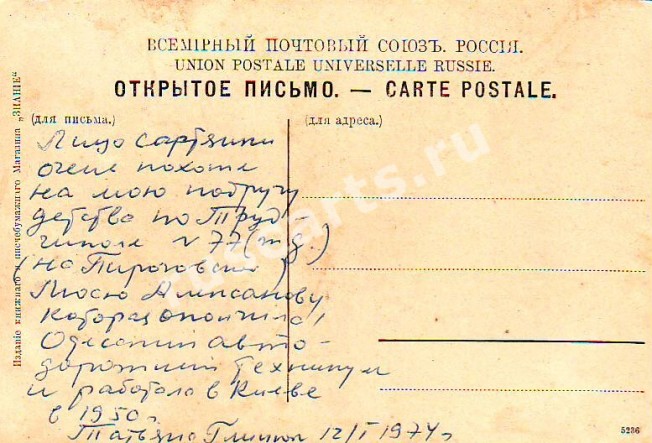 ВСЕМІРНЫЙ ПОЧТОВЫЙ СОЮЗЪ. РОССІЯ.
UNION POSTALE UNIVERSELLE RUSSIE.
ОТКРЫТОЕ ПИСЬМО. — CARTE POSTALE.
(для письма.)
(для адреса.)
Лицо сартянки
очень похоже
на мою подругу
детства по Труд
школе N 77 (т.д.)
(на Пироговской)
Люсю Алексанову
которая окончила
Одесский авто-
дорожный техникум
и работала в Киеве
в 1950 г
Татьяна 12/I 1974 г
Изданіе книжнаго писчебумажнаго Магазина „ЗНАНІЕ“
5236
ruscarts.ru